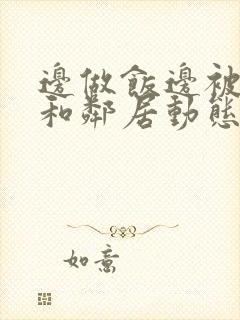 邊做飯邊被
和鄰居動態
如意